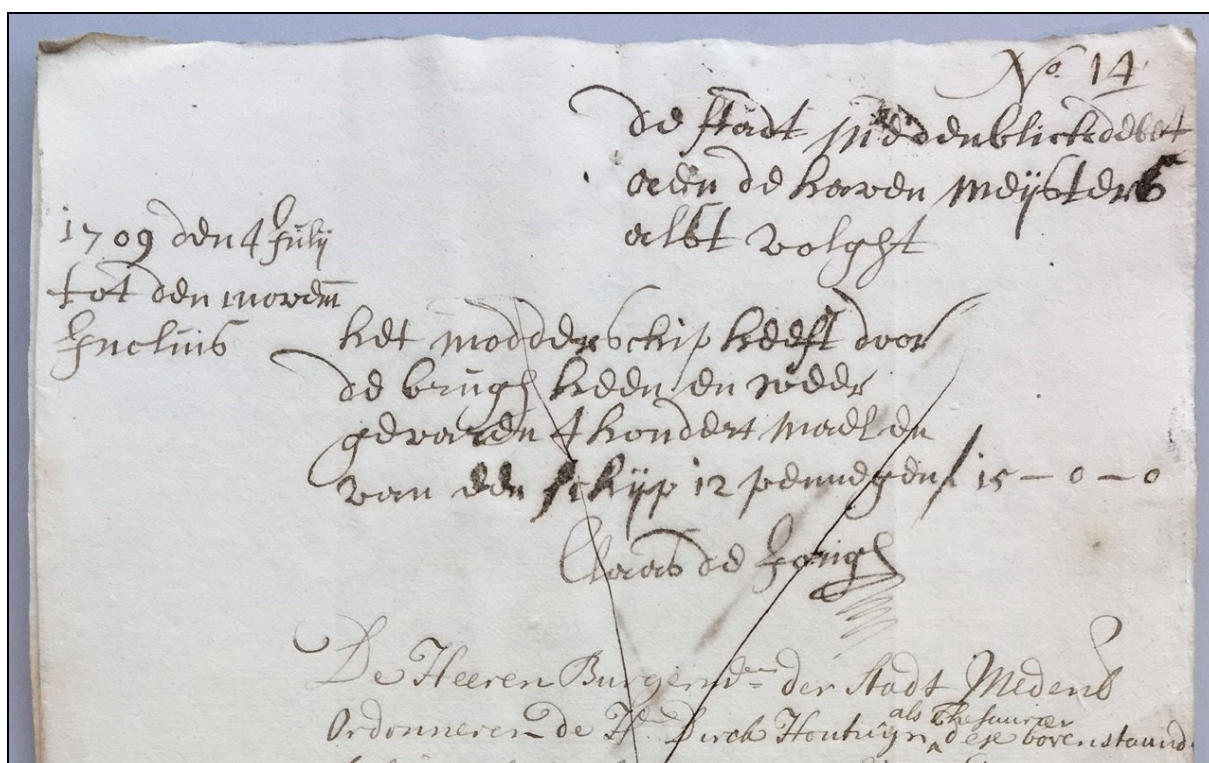 No 14
de stadt Meddenblick debet
aen de haven meijsters
alst volght
1709 den 4 Julij
tot den novem
Incluis
het modderschip heeft door
de brugh heen en weer
gevaren 4 hondert mael en
van een schijp 12 pennegen f 15 – 0 – 0
Claas de Jongh
De Heeren Burgermrn der Stadt Medenb
Ordonneren de Hr. Dirck Houtuijn als Thesaurier dese bovenstaand